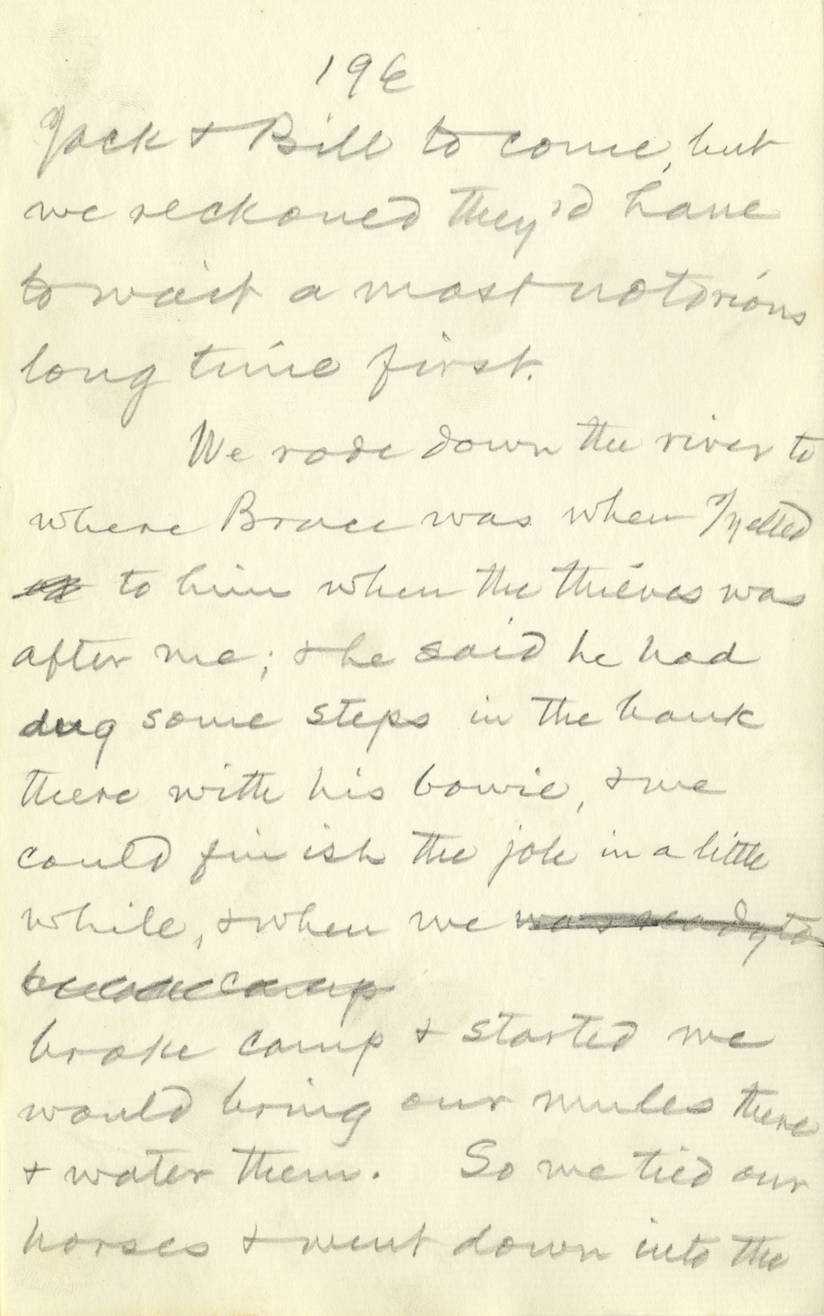 196
Jack & Bill to come, but
we reckoned they'd have
to wait a most notorious
long time first.
We rode down the river to
where Brace was when I yelled
to him when the thieves was
after me; & he said he had
dug some steps in the bank
there with his bowie, & we
could finish the job in a little
while, & when we was ready to
break camp
broke camp & started we
would bring our mules there
& water them. So we tied our
horses & went down into the